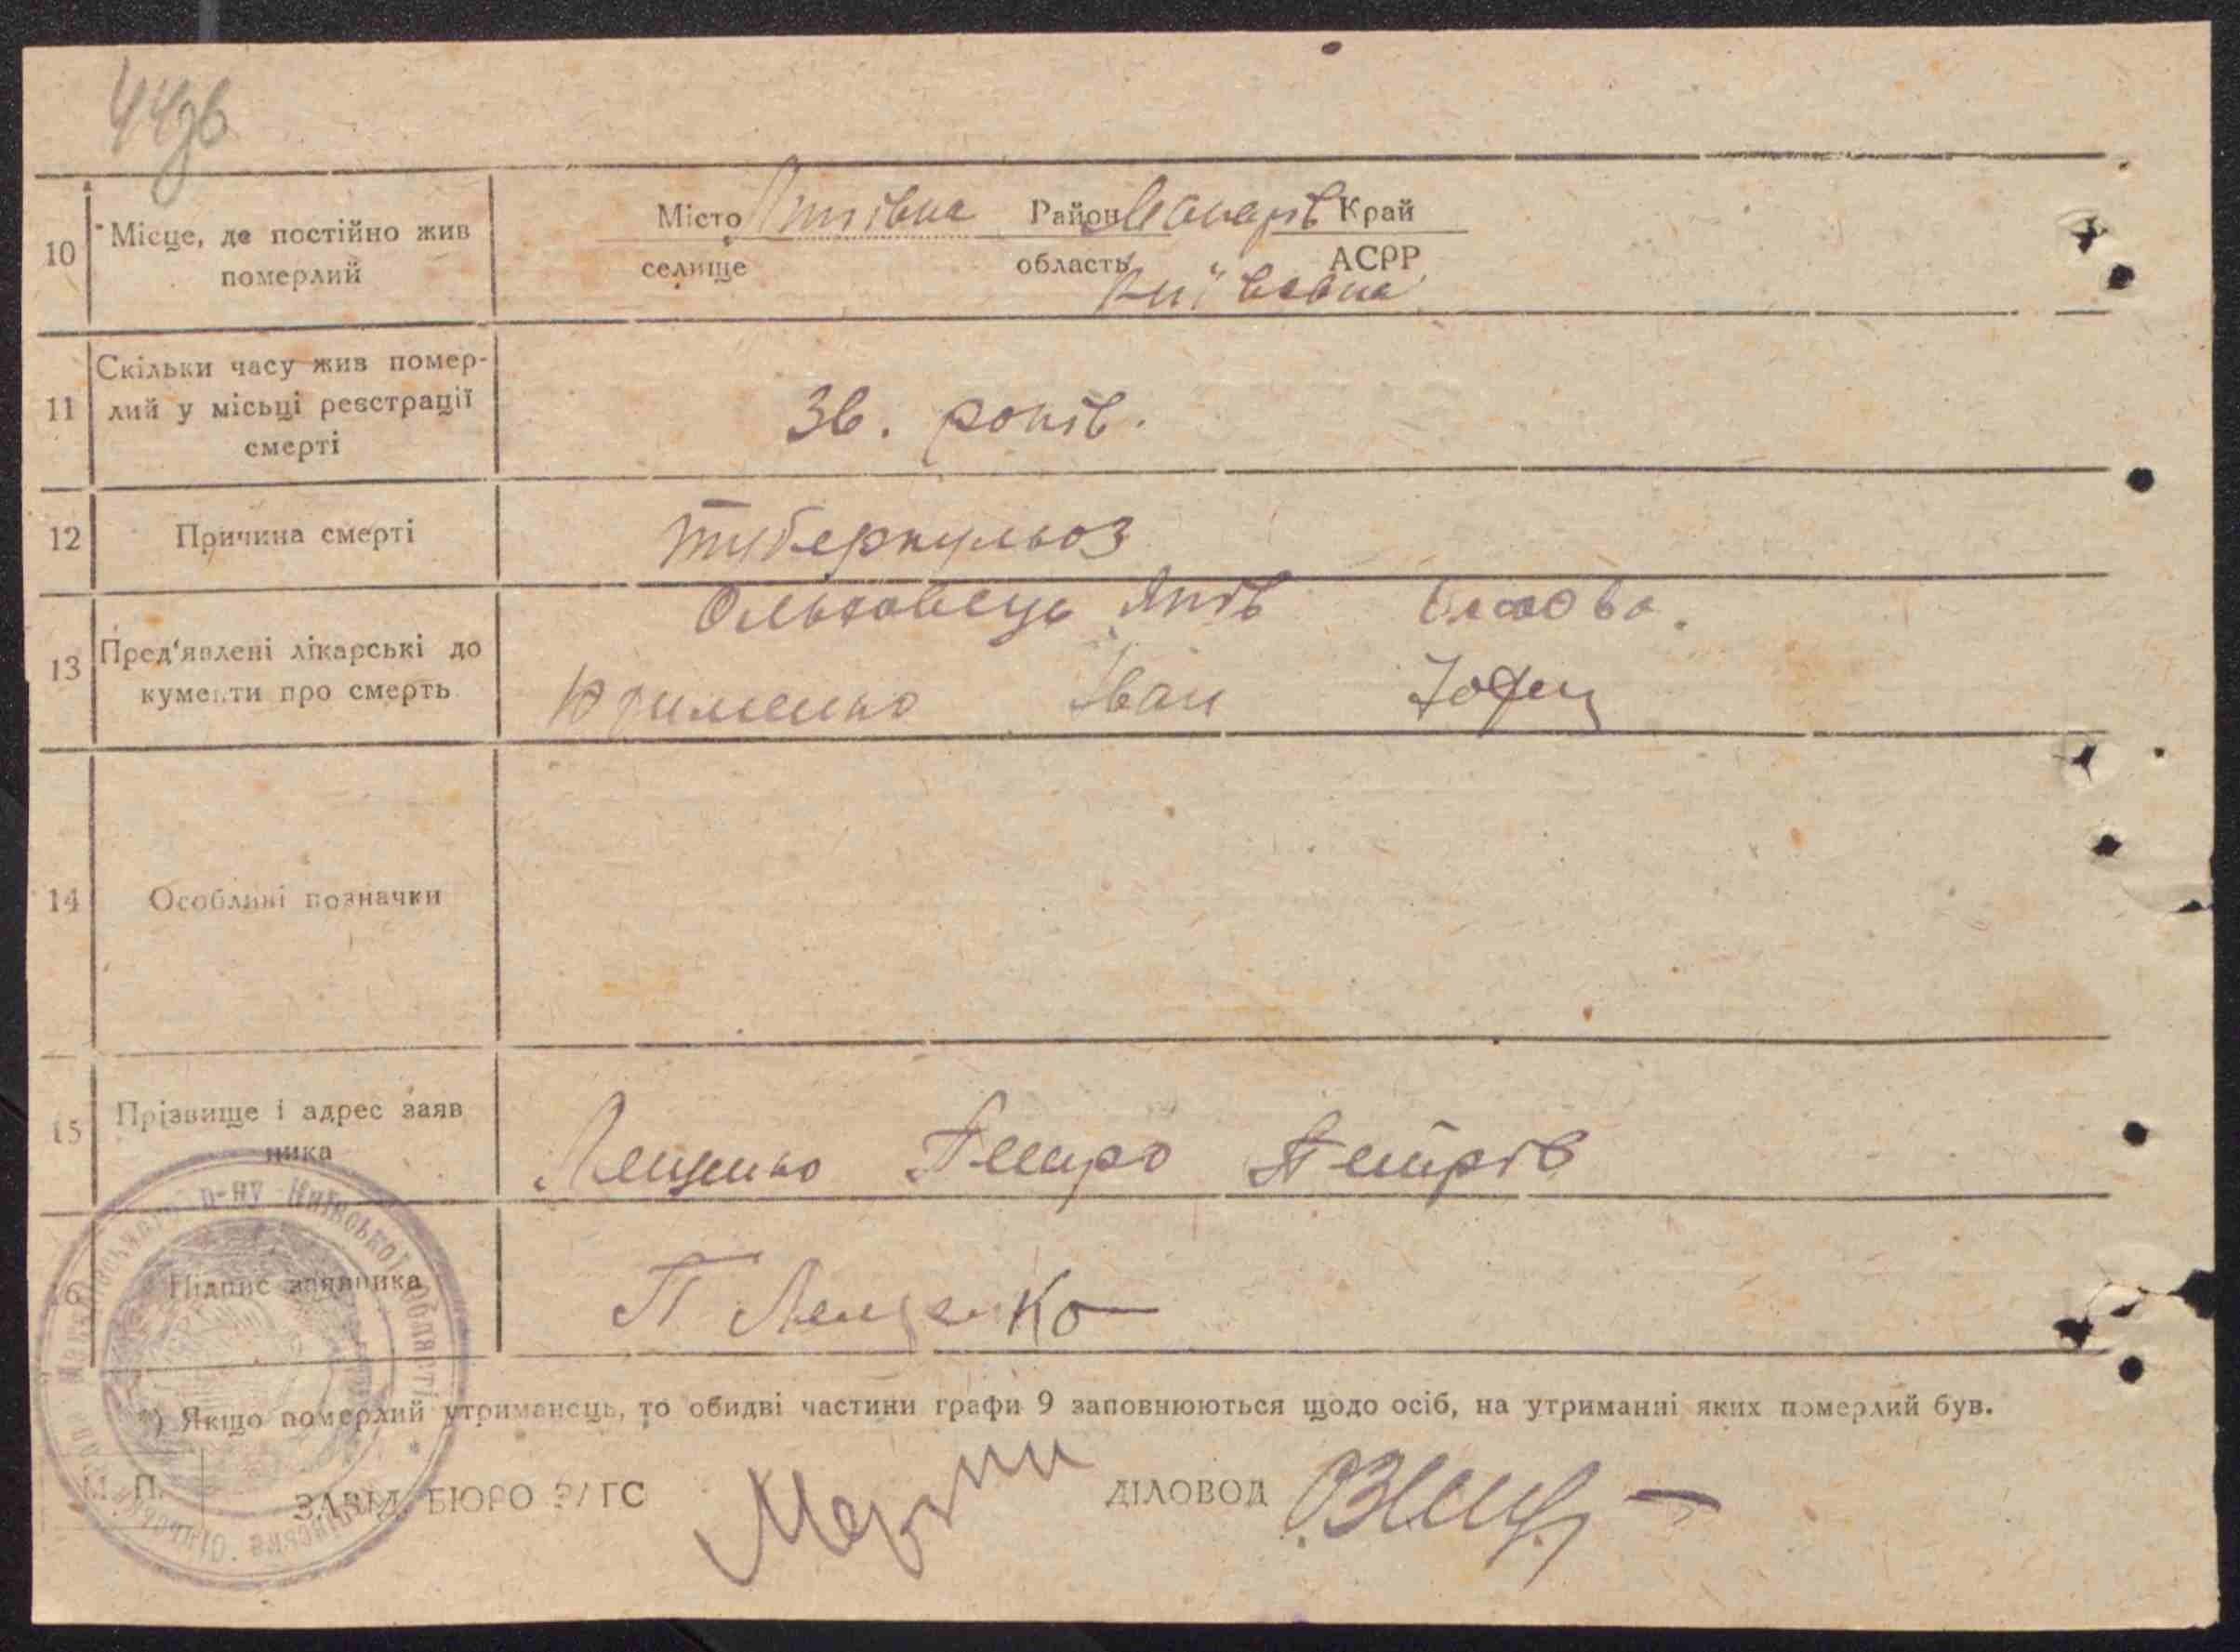 44зв
Місто Липівка Район Макарів Край
10 Місце, де постійно жив
селище область АСРР
померлий
Київська
Скільки часу жив помер-
11 лий у місьці реєстрації
36. років.
смерті
12 Причина смерті
туберкульоз
Ольховець Яків
13 Пред'явлені лікарські до
кументи про смерть
Юхименко Іван Юфим
14 Особливі позначки
15 Прізвище і адрес заяв
ника
Лещенко Петро Петрів
16 Підпис заявника
П Лещенко
Макарівського р-ну Київської області
*) Якщо померлий утриманець, то обидві частини графи 9 заповнюються щодо осіб, на утриманні яких померлий був.
М. П.
ЗАВІД. БЮРО ЗАГС
ДІЛОВОД